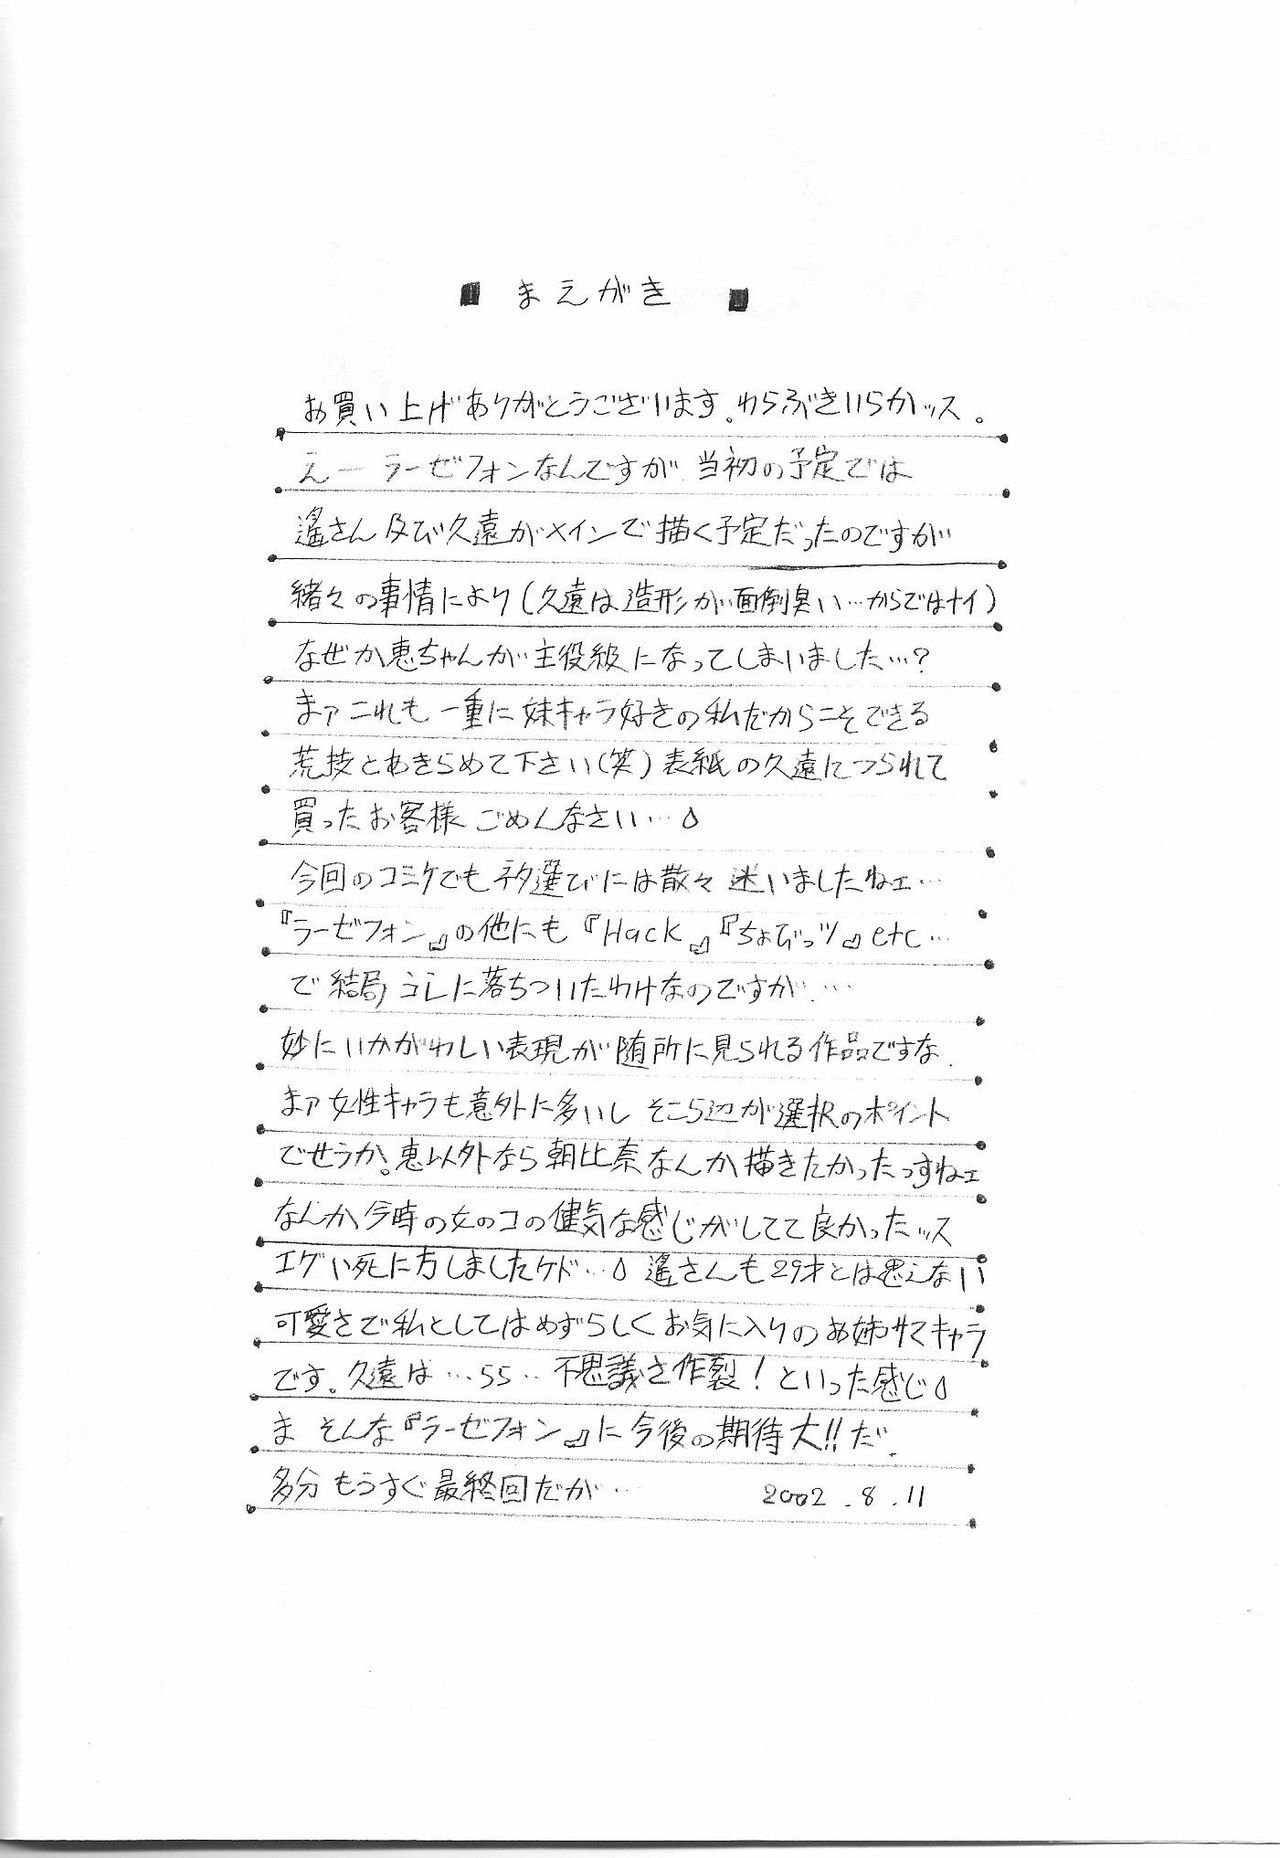 ■ まえがき ■
お買い上げありがとうございます。わらぶきいらかッス。
えー ラーゼフォンなんですが 当初の予定では
遙さん及び久遠がメインで描く予定だったのですが
緒々の事情により(久遠は造形が面倒臭い…からではナイ)
なぜか恵ちゃんが主役級になってしまいました…?
まァこれも一重に妹キャラ好きの私だからこそできる
荒技とあきらめて下さい(笑)表紙の久遠につられて
買ったお客様 ごめんなさい…
今回のコミケでもネタ選びには散々迷いましたねェ…
『ラーゼフォン』の他にも『Hack』『ちょびっツ』etc…
で結局コレに落ちついたわけなのですが…
妙にいかがわしい表現が随所に見られる作品ですな
まァ女性キャラも意外に多いし そこら辺が選択のポイント
でせうか。恵以外なら朝比奈なんか描きたかったっすねェ
なんか今時の女のコの健気な感じがしてて良かったッス
エグい死に方しましたケド… 遙さんも29才とは思えない
可愛さで私としてはめずらしくお気に入りのお姉サマキャラ
です。久遠は…ララ‥不思議さ作裂!といった感じ
ま そんな『ラーゼフォン』に今後の期待大!!だ
多分もうすぐ最終回だが… 2002.8.11